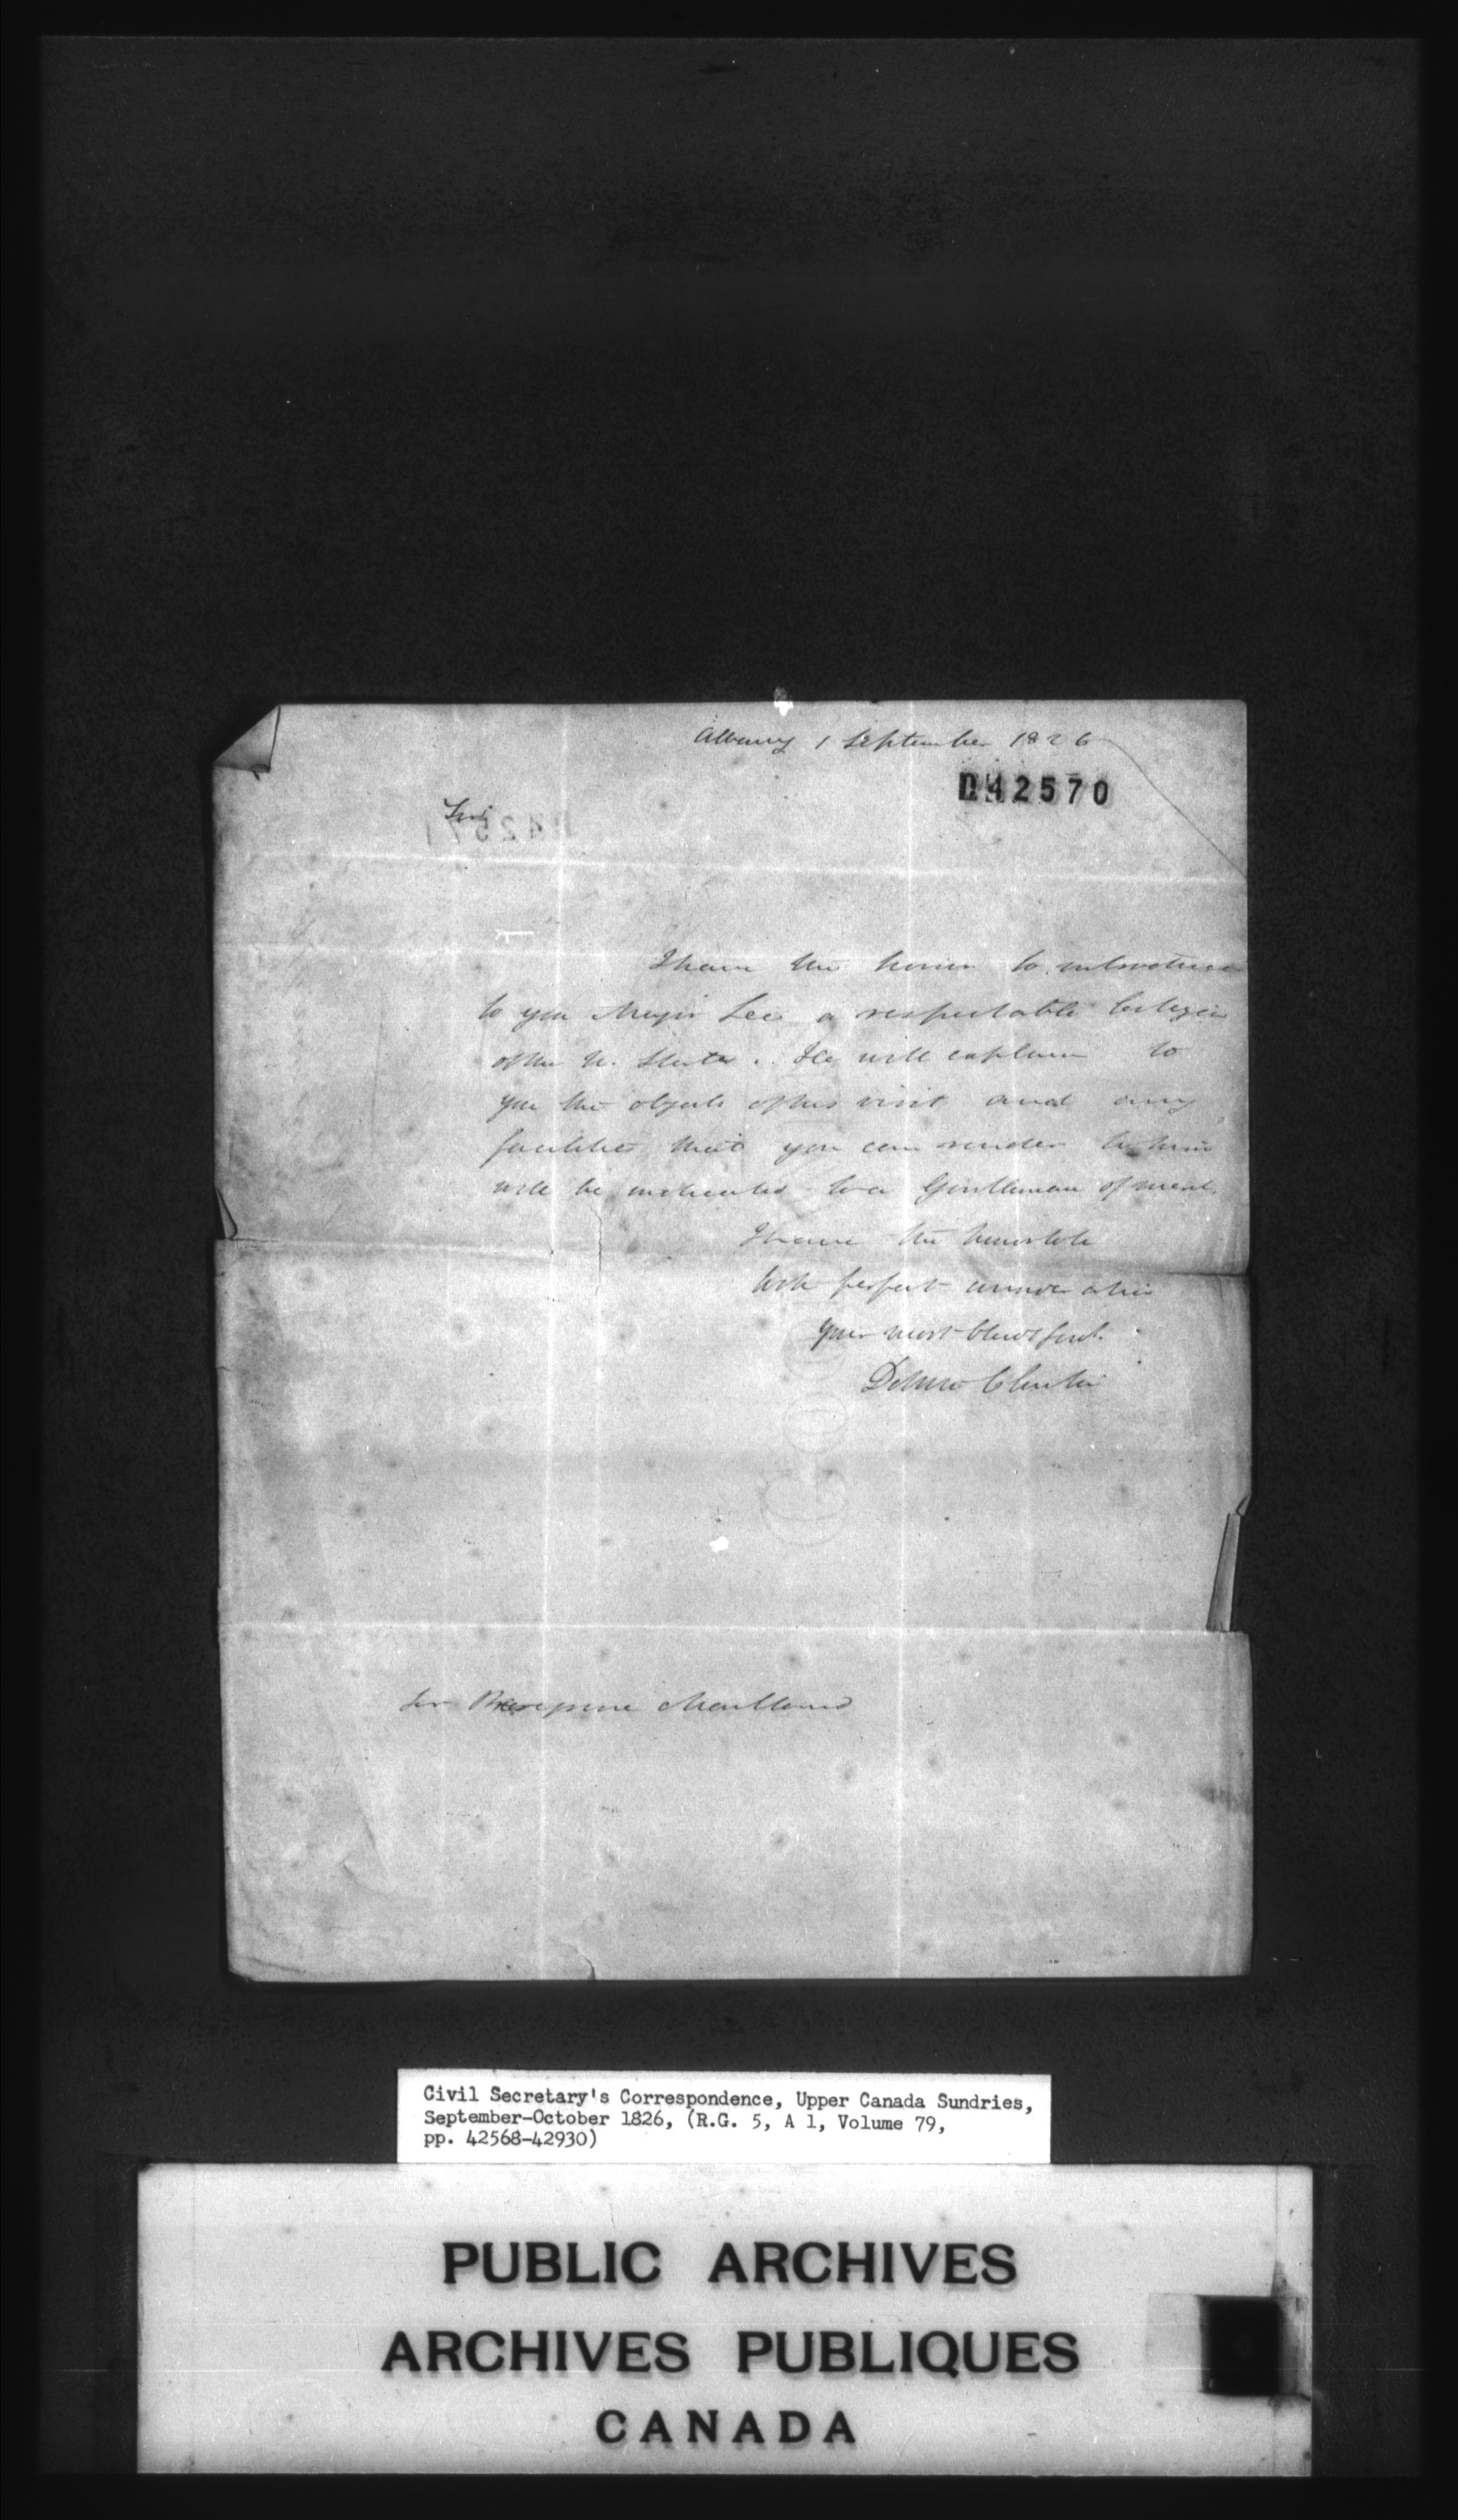 Albany 1 September 1826
042570
Sir
I have the honor to introduce
to you Major Lee a respectable Citizen
of the U. States. He will explain to
you the objects of his visit and any
facilities that you can render to him
will be to a Gentleman of merit.
I have the honor to be
with perfect consideration
Your most Obedt Servt.
DeWitt Clinton
Sir Peregrine Maitland
Civil Secretary's Correspondence, Upper Canada Sundries,
September-October 1826, (R.G. 5, A 1, Volume 79,
pp. 42568-42930)
PUBLIC ARCHIVES
ARCHIVES PUBLIQUES
CANADA